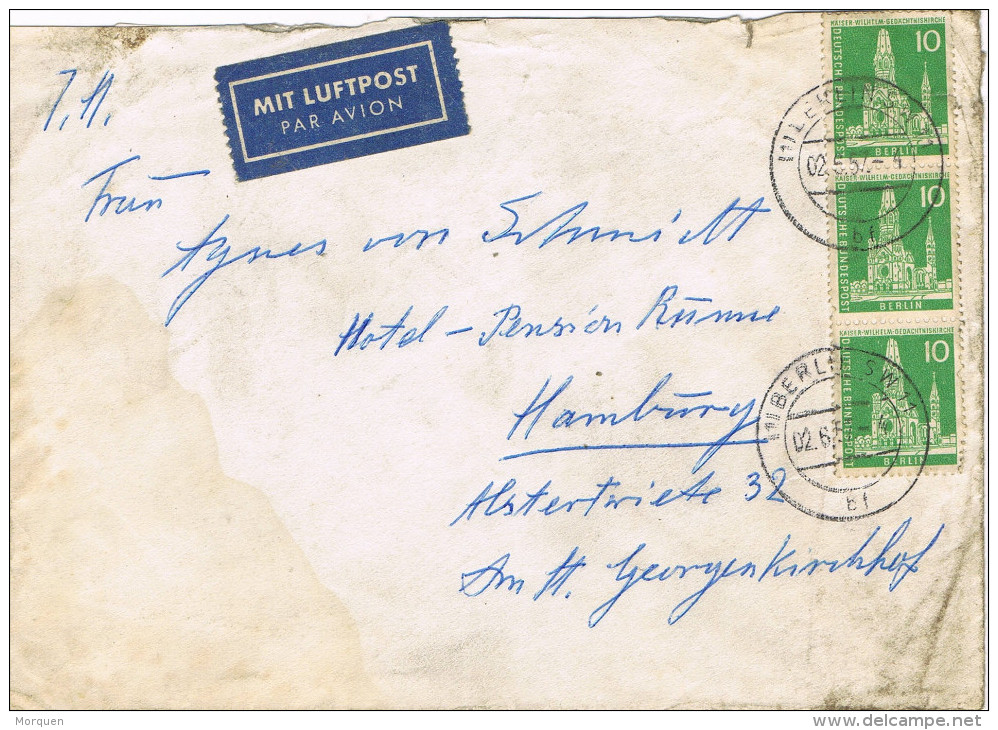 MIT LUFTPOST
PAR AVION
Frau
Agnes von Schmidt
Hotel - Pension Rumme
Hamburg
Alstertwiete 32
Am St. Georgenkirchhof
KAISER-WILHELM-GEDÄCHTNISKIRCHE
10
DEUTSCHE BUNDESPOST
BERLIN
KAISER-WILHELM-GEDÄCHTNISKIRCHE
10
DEUTSCHE BUNDESPOST
BERLIN
KAISER-WILHELM-GEDÄCHTNISKIRCHE
10
DEUTSCHE BUNDESPOST
BERLIN
(1) BERLIN SW 11
02.6.57.- 4
bf
(1) BERLIN SW 11
02.6.5 - 4
bf
Morquen
delcampe.net